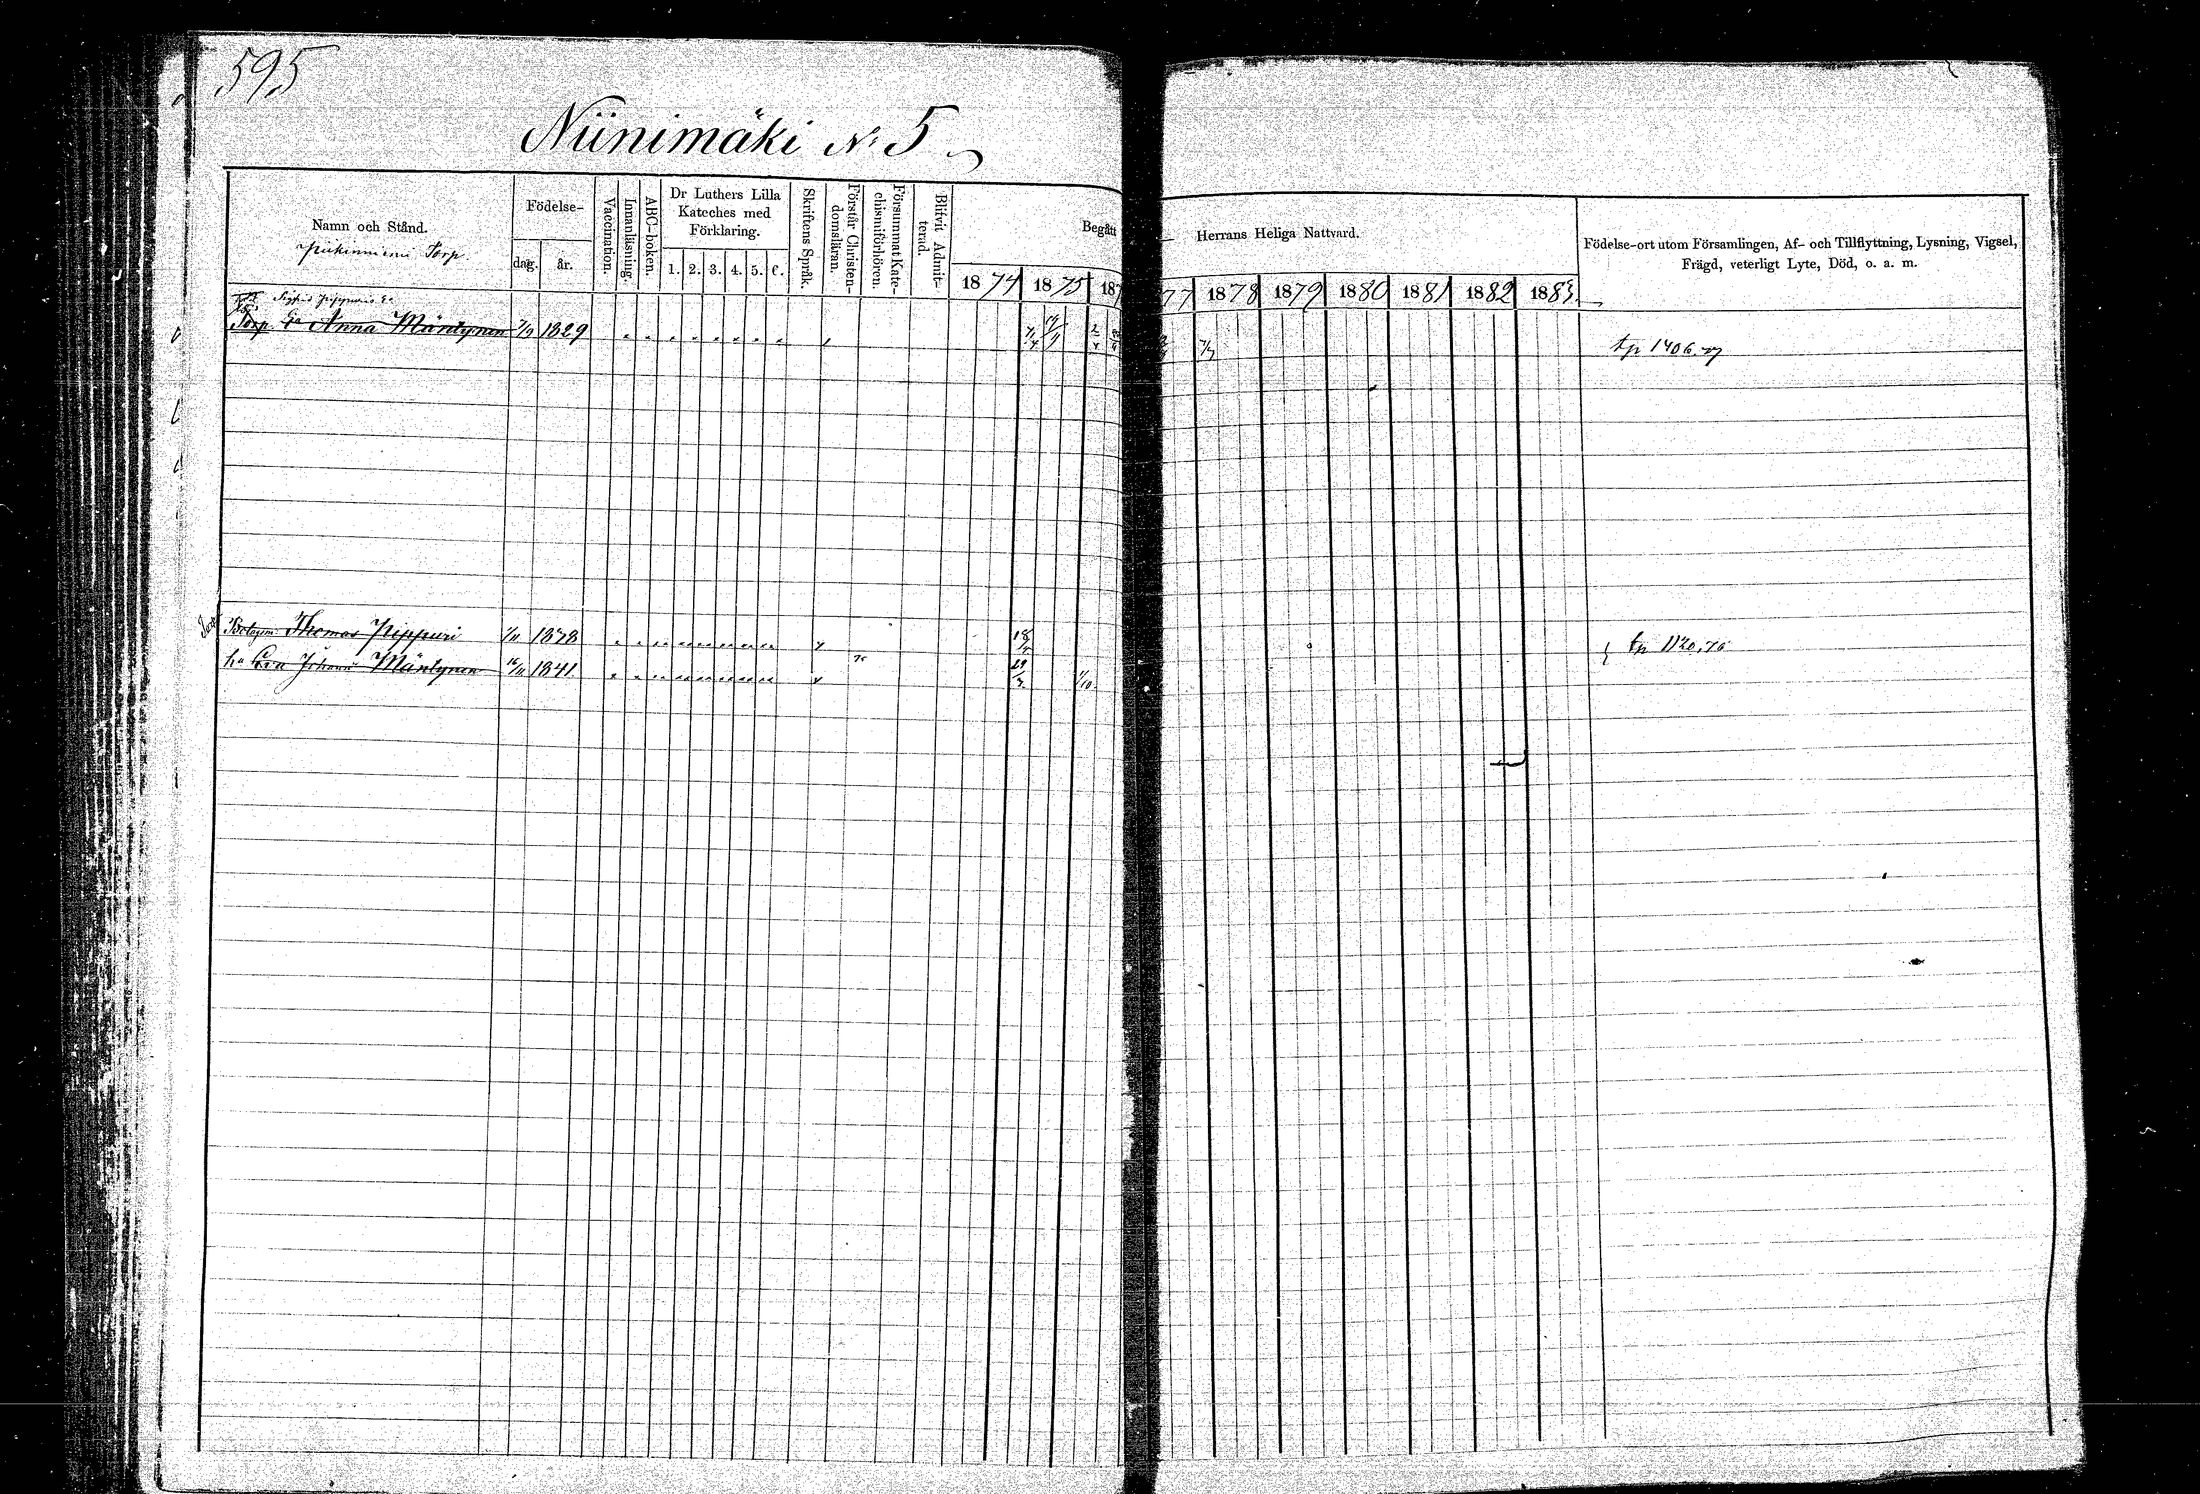 595
Niinimäki No 5
Namn och Stånd.
Torp.
Födelse-
dag.
år.
Vaccination.
Innanläsning.
ABC-boken.
Dr Luthers Lilla
Kateches med
Förklaring.
1. 2. 3. 4. 5. 6.
Skriftens Språk.
Förstår Christen-
domsläran.
Försummat Kate-
chismiförhören.
Blifvit Admit-
terad.
Begått
Herrans Heliga Nattvard.
1874 1875 187
77 1878 1879 1880 1881 1882 1883.
Födelse-ort utom Församlingen, Af- och Tillflyttning, Lysning, Vigsel,
Frägd, veterligt Lyte, Död, o. a. m.
Sigfrid Pippuris Ea
Torp. Ea Anna Mäntynen 7/9 1829
7/7
tp 1406.77
Bolagsm. Thomas Pippuri 1/11 1838
18
tp 1120.76
hu Eva Johanna Mäntynen 16/11 1841
29
1/10.